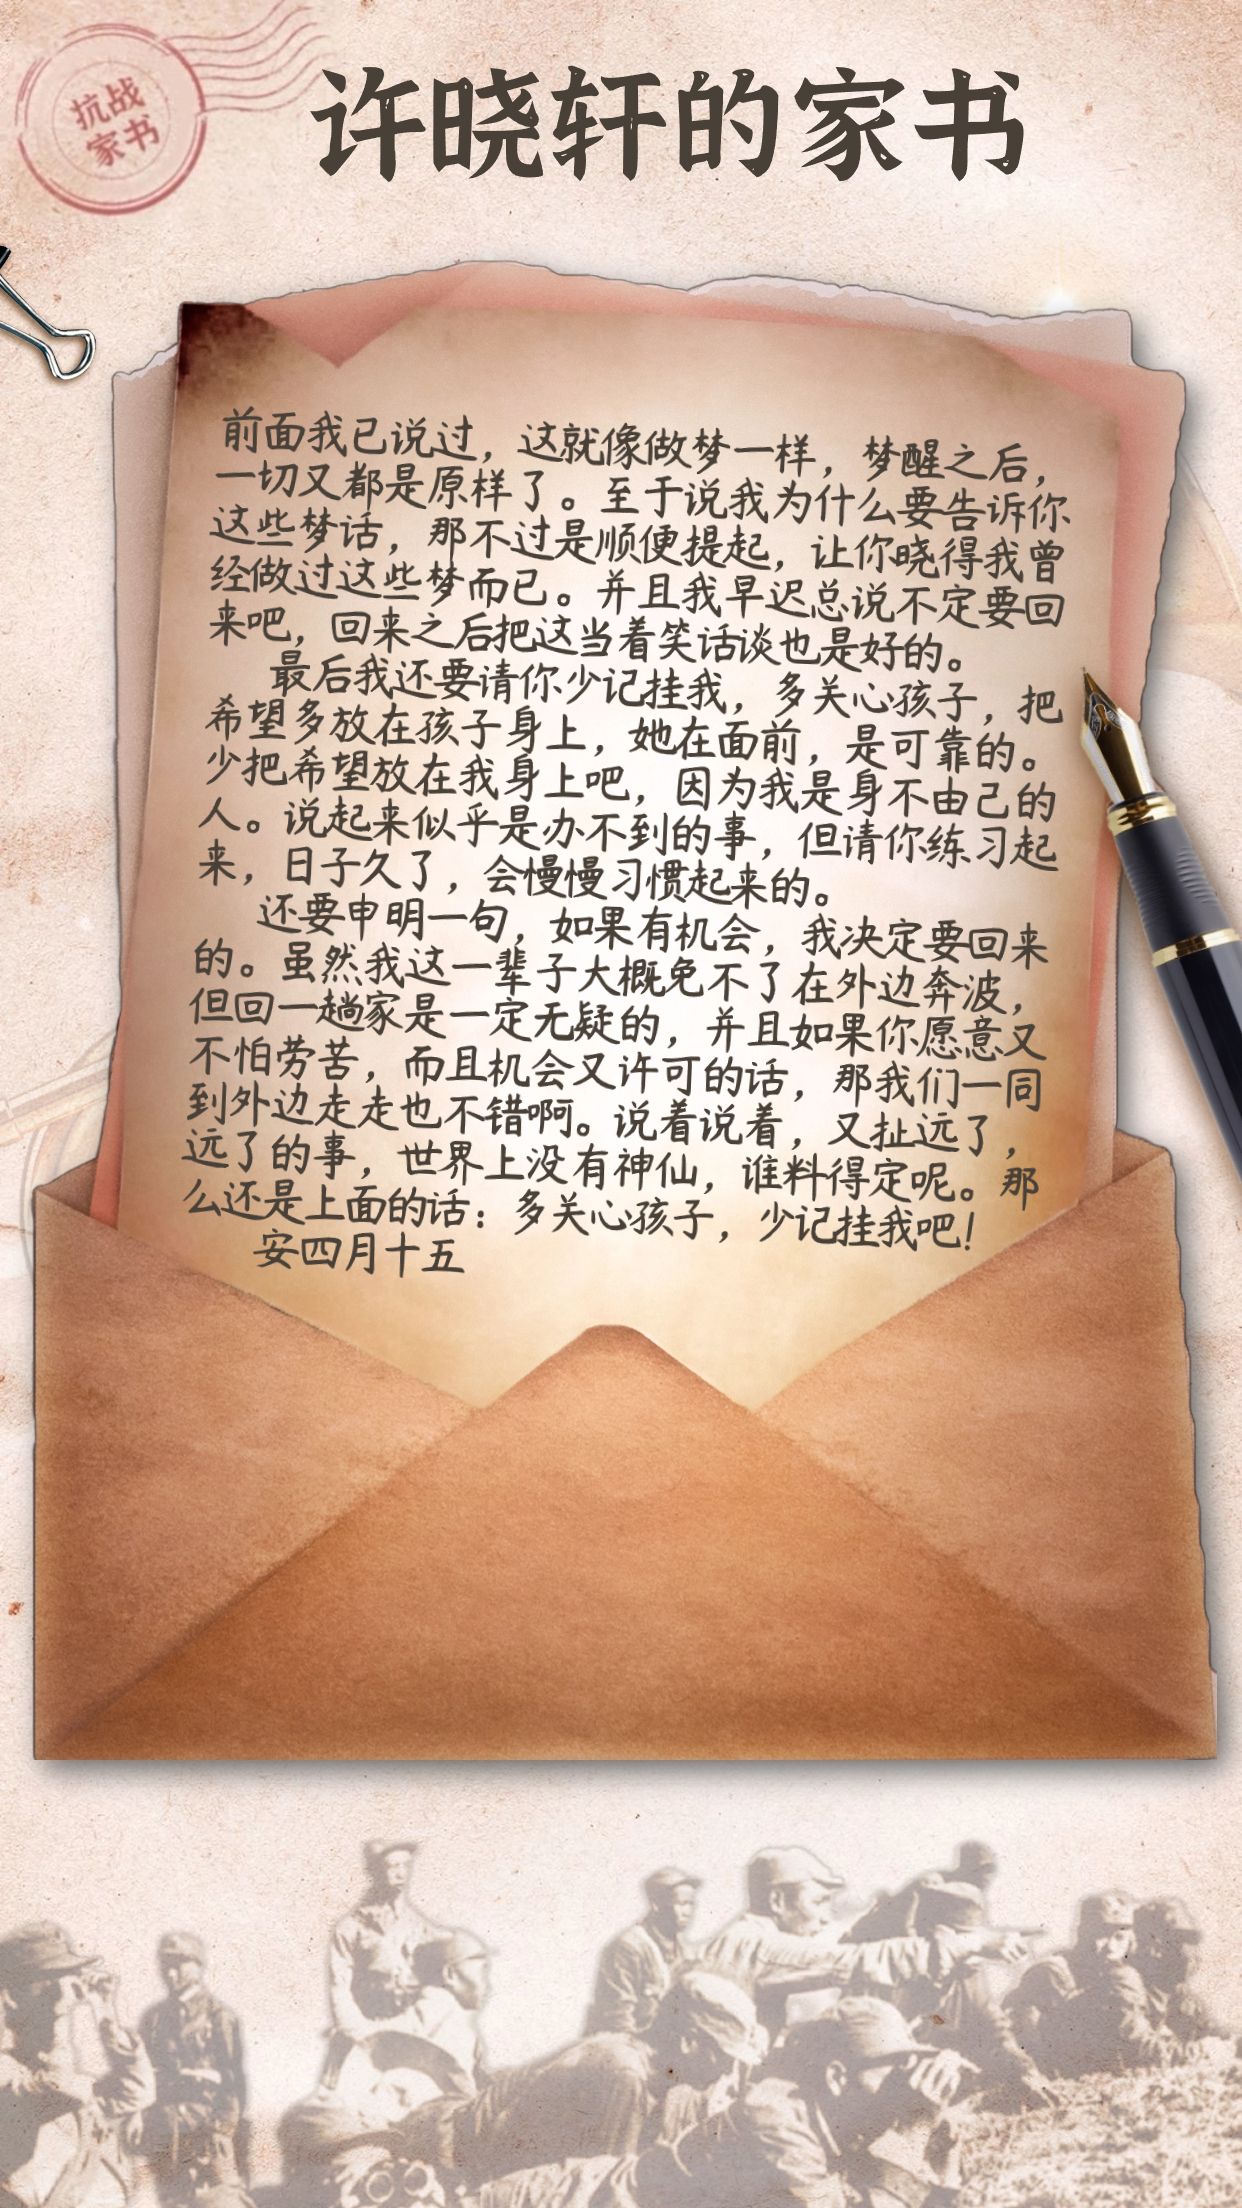 抗战
家书
许晓轩的家书
前面我已说过，这就像做梦一样，梦醒之后，
一切又都是原样了。至于说我为什么要告诉你
这些梦话，那不过是顺便提起，让你晓得我曾
经做过这些梦而已。并且我早迟总说不定要回
来吧，回来之后把这当着笑话谈也是好的。
最后我还要请你少记挂我，多关心孩子，把
希望多放在孩子身上，她在面前，是可靠的。
少把希望放在我身上吧，因为我是身不由己的
人。说起来似乎是办不到的事，但请你练习起
来，日子久了，会慢慢习惯起来的。
还要申明一句，如果有机会，我决定要回来
的。虽然我这一辈子大概免不了在外边奔波，
但回一趟家是一定无疑的，并且如果你愿意又
不怕劳苦，而且机会又许可的话，那我们一同
到外边走走也不错啊。说着说着，又扯远了，
远了的事，世界上没有神仙，谁料得定呢。那
么还是上面的话：多关心孩子，少记挂我吧！
安四月十五